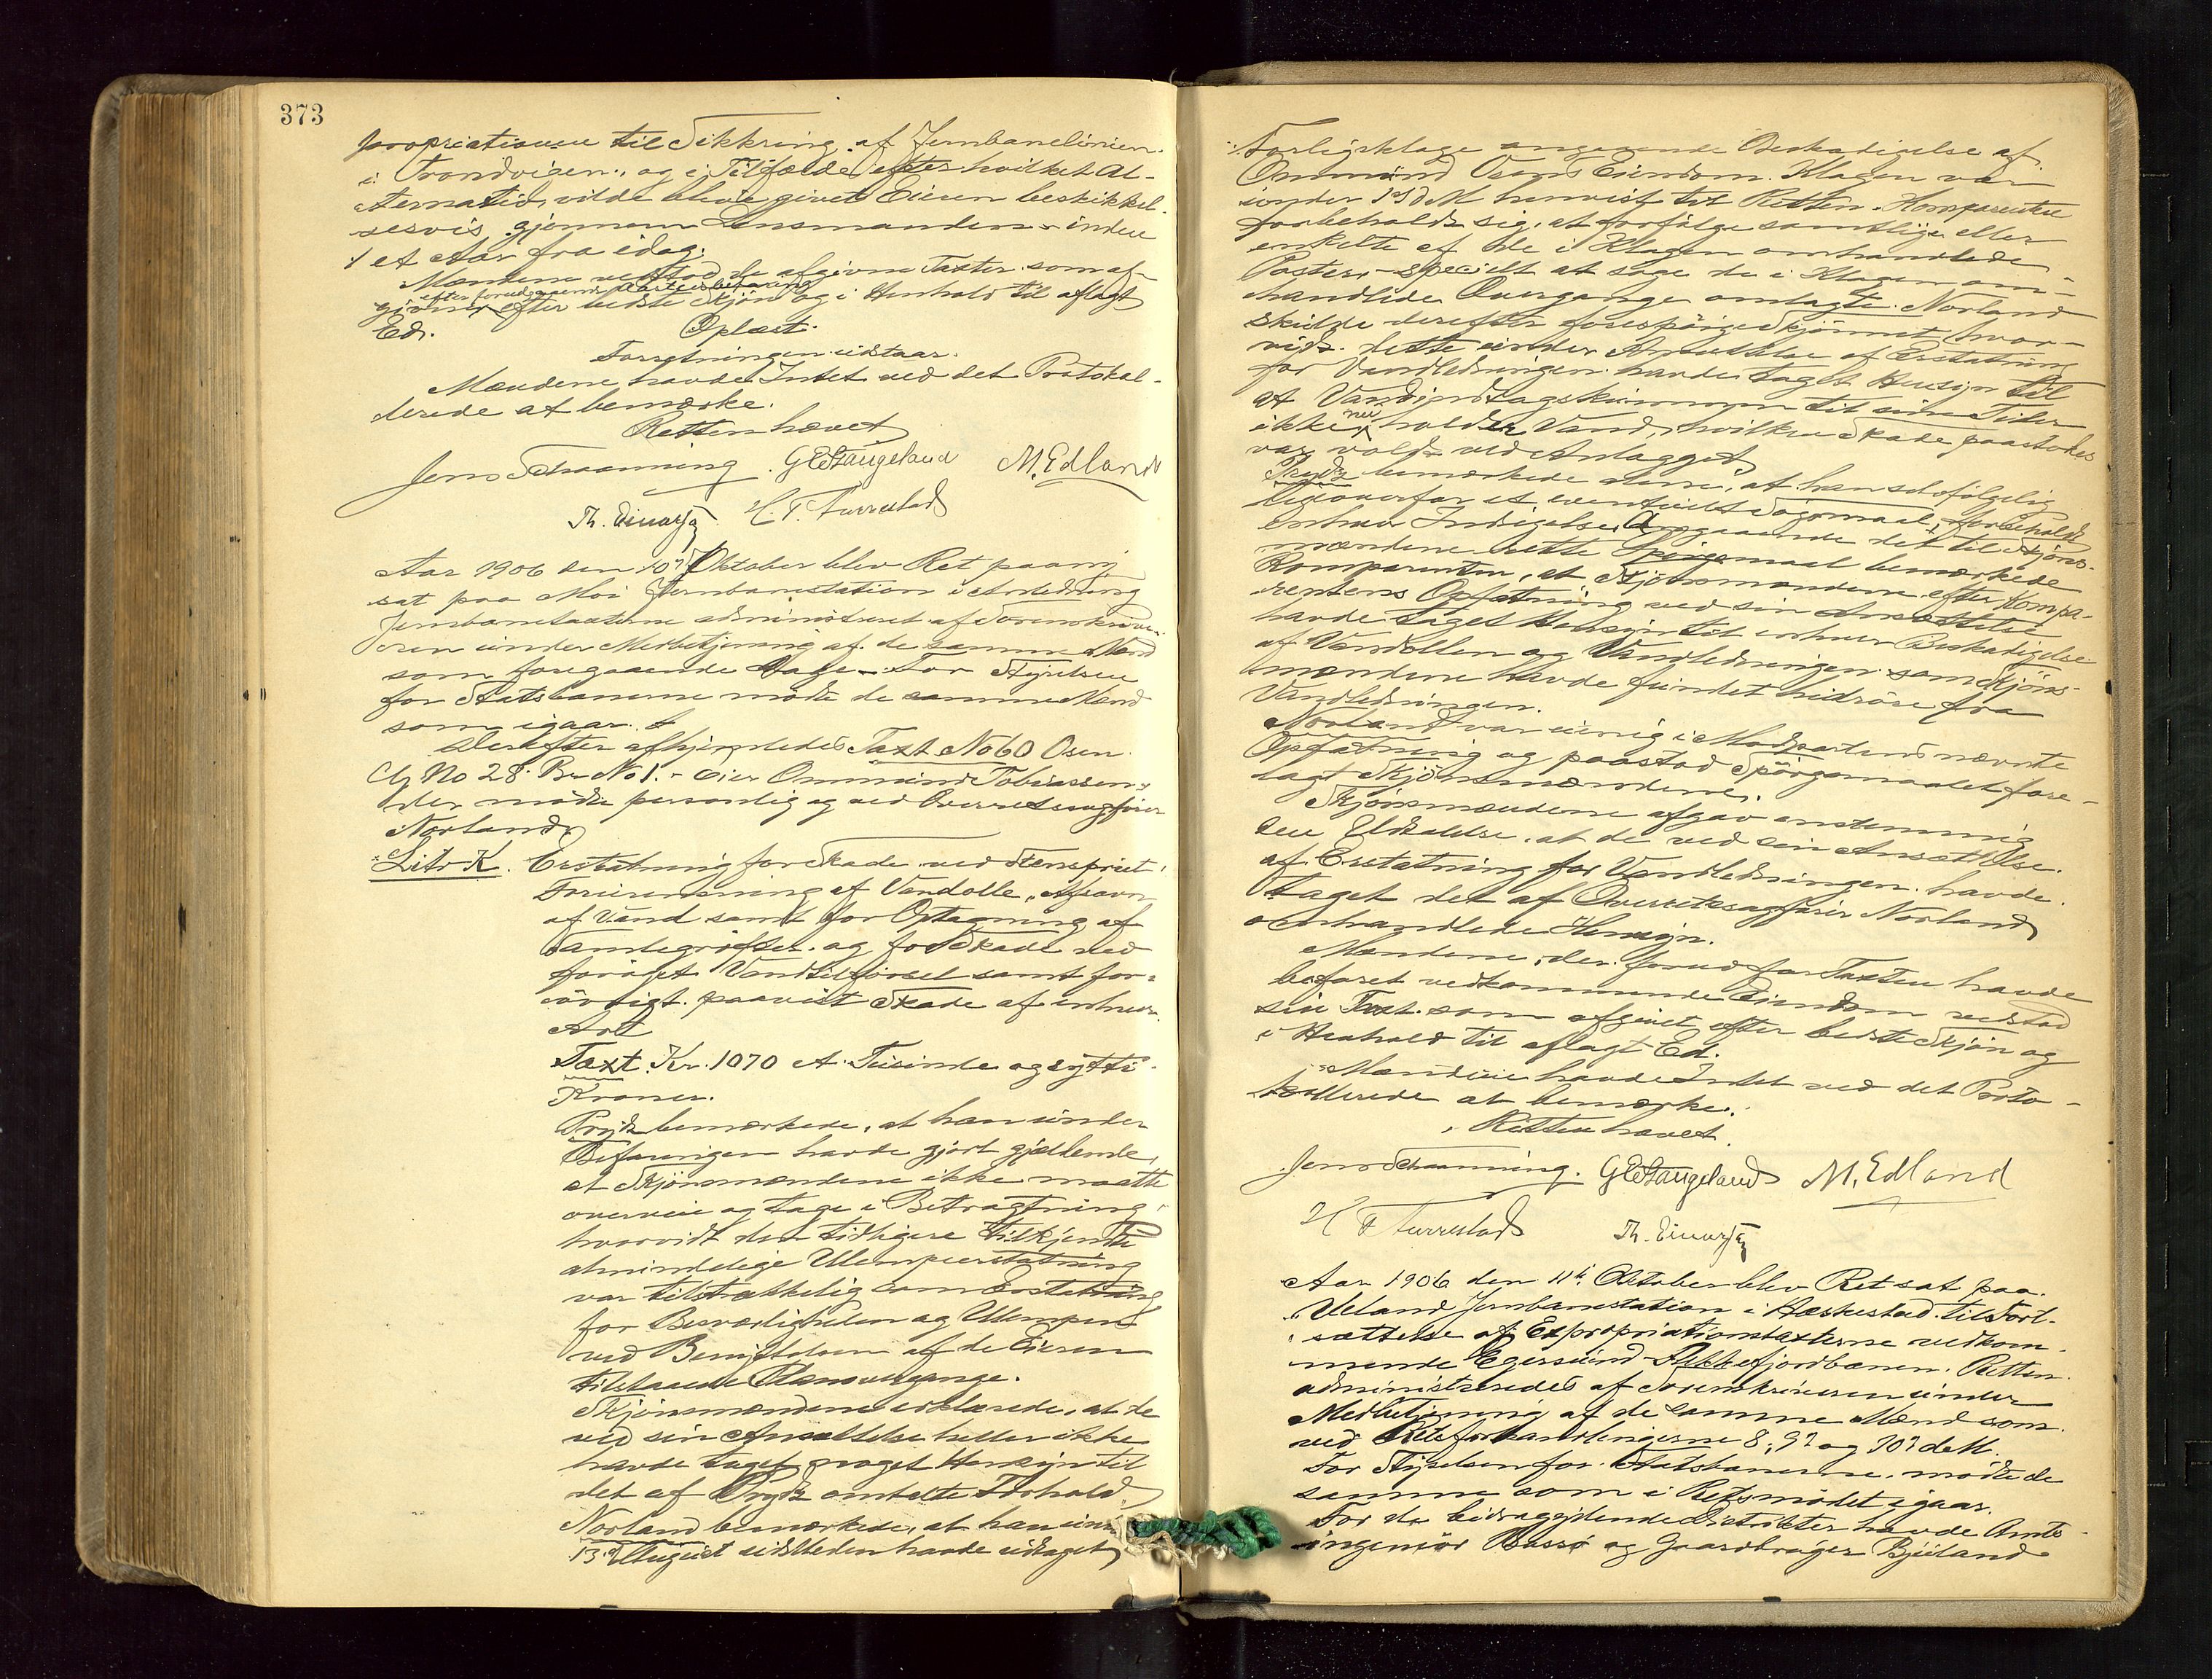 373
propriationen til Sikkring af Jernbanelinien
i Trondvigen, og i Tilfælde efter hvilket Al-
ternativ, vilde blive givet Eieren beskikkel-
sesvis gjennem Lensmanden inden
1 et Aar fra idag.
Mændene vedstod de afgivne Taxter som af-
efter foregaaende Aastedsbefaring
givne efter bedste Skjøn og i Henhold til aflagt
Ed.
Oplæst.
Forretningen udstaar.
Mændene havde Intet ved det Protokol-
lerede at bemærke.
Retten hævet
Jens Schanning G E Stangeland M. Edland
Th. Einarson H. T. Furrestad
Aar 1906 den 10de Oktober blev Ret paany
sat paa Moi Jernbanestation i Anledning
Jernbanetaxterne administreret af Sorenskrive-
ren under Medbetjening af de samme Mænd
som foregaaende Dage. - For Styrelsen
for Statsbanerne mødte de samme Mænd
som igaar.
Derefter afhjemledes Taxt No 60 Osen
G No 28 Br No 1. - Eier Ommund Tobiassen,
der mødte personlig og ved Overretssagfører
Norland,
Litr K. Erstatning for Skade ved Stensprut
forurensning af Vandolle, Afsavn
af Vand samt for Optagning af
Tamtegrøfter og for Skade ved
forøget Vandtilførsel samt for-
øvrigt paavist Skade af enhver
Art
Taxt Kr. 1070 Et Tusinde og sytti
Kroner.
Prydz bemærkede, at han under
Befaringen havde gjort gjældende,
at Skjønsmændene ikke maatte
overveie og tage i Betragtning
hvorvidt den tidligere tilkjendte
almindelige Ulempeerstatning
var tilstrækkelig som Erstatning
for Besværligheden og Ulempen
ved Benyttelsen af de Eieren
tilstaaede Planovergange.
Skjønsmændene erklærede, at de
ved sin Ansættelse heller ikke
havde taget noget Hensyn til
det af Prydz omtalte Forhold.
Norland bemærkede, at han un
13de August sidstleden havde udtaget
Forligsklage angaaende Beskadigelse af
Ommund Osens Eiendom. Klagen var
under 19 d M henvist til Retten. Komparenten
forbeholdt sig, at forfølge samtlige eller
enkelte af de i Klagen omhandlede
Poster, - specielt at søge de i Klagen om-
handlede Overgange omlagte. Norland
skulde derefter forespørge Skjønnet hvor-
vidt dette under Ansættelse af Erstatning
for Vandledningen havde taget Hensyn til
at Vandindtagskummen til sine Tider
ikke nu holder Vand, hvilken Skade paastodes
var voldt ved Anlægget
Prydz bemærkede hertil, at han selvfølgelig
ligeoverfor et eventuelt Søgsmaal, forbeholdt
enhver Indsigelse. Angaaende det til Skjøns-
mændene rettede Spørgsmaal bemærkede
Komparenten, at Skjønsmændene efter Kompa-
rentens Opfatning ved sin Ansættelse
havde taget Hensyn til enhver Beskadigelse
af Vandollen og Vandledningen som Skjøns-
mændene havde fundet hidrøre fra
Vandledningen.
Norland var uenig i Modpartens nævnte
Opfatning og paastod Spørgsmaalet fore-
lagt Skjønsmændene.
Skjønsmændene afgav enstemmig
den Udtalelse, at de ved sin Ansættelse
af Erstatning for Vandledningen havde
taget det af Overretssagfører Norland
omhandlede Hensyn.
Mændene, der forud for Taxten havde
befaret vedkommende Eiendom vedstod
sin Taxt som afgivet efter bedste Skjøn og
i Henhold til aflagt Ed.
Mændene havde Intet ved det Proto-
kollerede at bemærke.
Retten hævet.
Jens Schanning. G E Stangeland M. Edland
H T Furrestad Th. Einarson
Aar 1906 den 11te Oktober blev Ret sat paa
Ueland Jernbanestation i Heskestad til Fort-
sættelse af Expropriationstaxterne vedkom-
mende Egersund-Flekkefjordbanen. Retten
administreredes af Sorenskriveren under
Medbetjening af de samme Mænd som
ved Retsforhandlingerne 8, 9de og 10de d. M.
For Styrelsen for Statsbanerne mødte de
samme som i Retsmødet igaar.
For de bidragydende Distrikter havde Amts-
ingeniør Bassø og Gaardbruger Bjuland